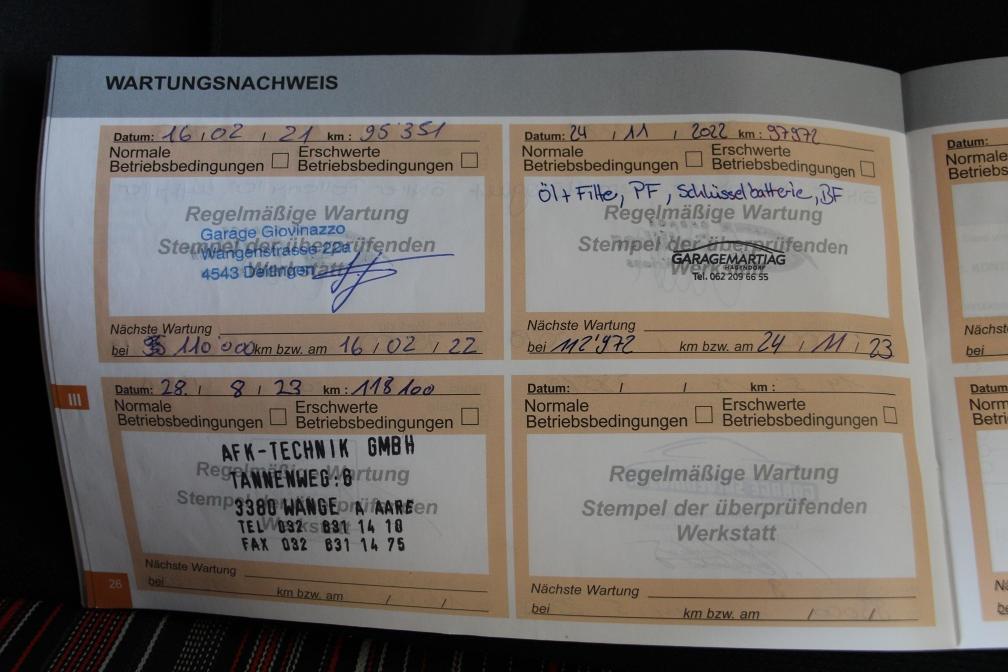 WARTUNGSNACHWEIS
Datum: 16 / 02 / 21 km : 95'351
Normale Betriebsbedingungen
Erschwerte Betriebsbedingungen
Regelmäßige Wartung
Stempel der überprüfenden
Werkstatt
Garage Giovinazzo
Wangenstrasse 22a
4543 Deitingen
Nächste Wartung
bei 110'000 km bzw. am 16 / 02 / 22
Datum: 24 / 11 / 2022 km : 97972
Normale Betriebsbedingungen
Erschwerte Betriebsbedingungen
Öl + Filter, PF, Schlüsselbatterie, BF
Regelmäßige Wartung
Stempel der überprüfenden
Werkstatt
GARAGEMARTIAG
HÄGENDORF
Tel. 062 209 66 55
Nächste Wartung
bei 112'972 km bzw. am 24 / 11 / 23
III
Datum: 28. / 8 / 23 km : 118100
Normale Betriebsbedingungen
Erschwerte Betriebsbedingungen
AFK-TECHNIK GMBH
Regelmäßige Wartung
TANNENWEG:6
Stempel der überprüfenden
Werkstatt
3380 WANGE A AARE
TEL 032 631 14 18
FAX 032 631 14 75
Nächste Wartung
bei km bzw. am / /
Datum: / / km :
Normale Betriebsbedingungen
Erschwerte Betriebsbedingungen
Regelmäßige Wartung
Stempel der überprüfenden
Werkstatt
Nächste Wartung
bei km bzw. am / /
26
Datum: